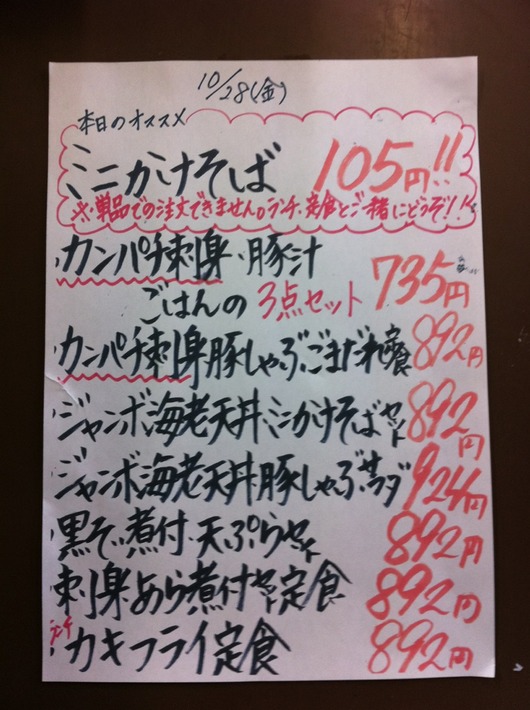 10/28(金)
本日のオススメ
ミニかけそば 105円!!
※単品での注文できません。ランチ、定食とご一緒にどうぞ!!
カンパチ刺身・豚汁
ごはんの3点セット 735円
カンパチ刺身豚しゃぶごまだれ定食 892円
ジャンボ海老天丼ミニかけそばセット 892円
ジャンボ海老天丼豚しゃぶサラダ 924円
黒そい煮付・天ぷらセット 892円
刺身あら煮付セット定食 892円
ランチ カキフライ定食 892円